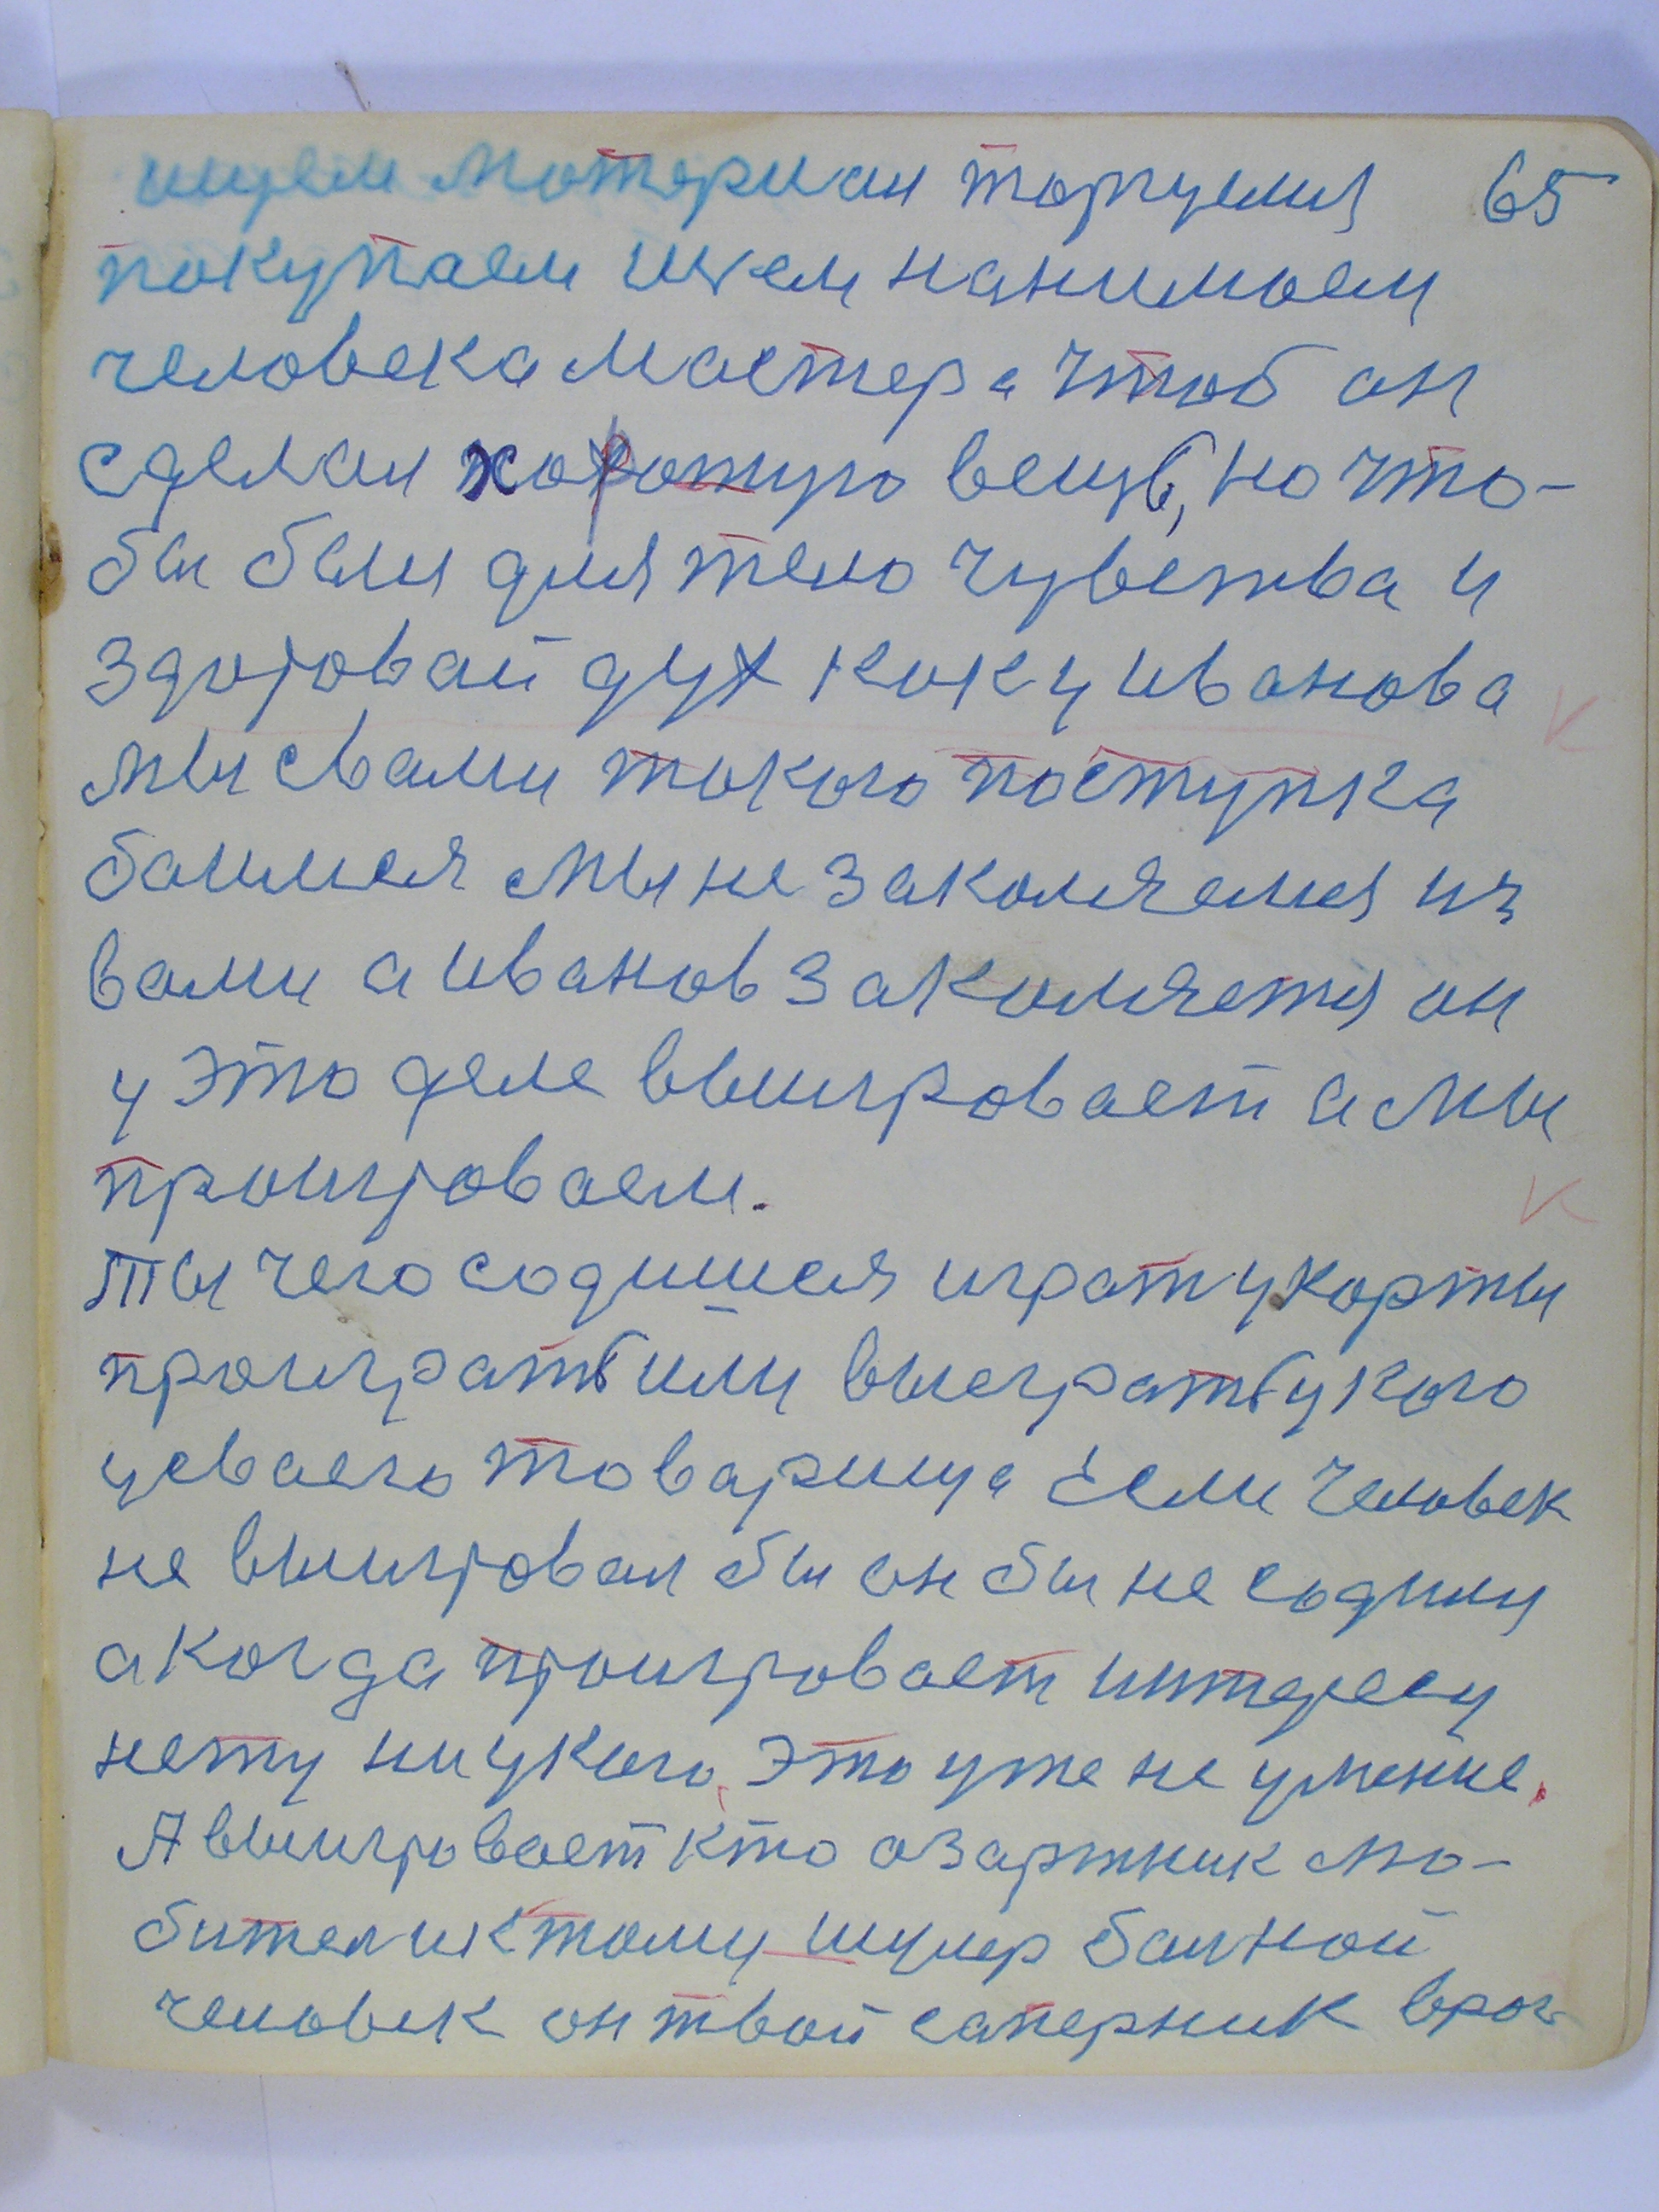 ищем мотериал торгуемся 65
покупаем шьем нанимоем
человека мастера чтоб он
сделал хорошую вещь, но что-
бы были для тело чувства и
здоровай дух как у иванова
мы свами токого поступка
баимся мы не закомяемся из
вами а иванов закомяется он
у это деле выигровает а мы
проигроваем.
Ты чего содишися играт у карты
проиграть или выеграть у кого
у сваего товарища Если человек
не выигровал бы он бы не содился
а когда проигровает интересу
нету ни у кого, это уже не умение.
А выигровает кто озартник лю-
бител и к тому шулер балной
человек он твой саперник враг